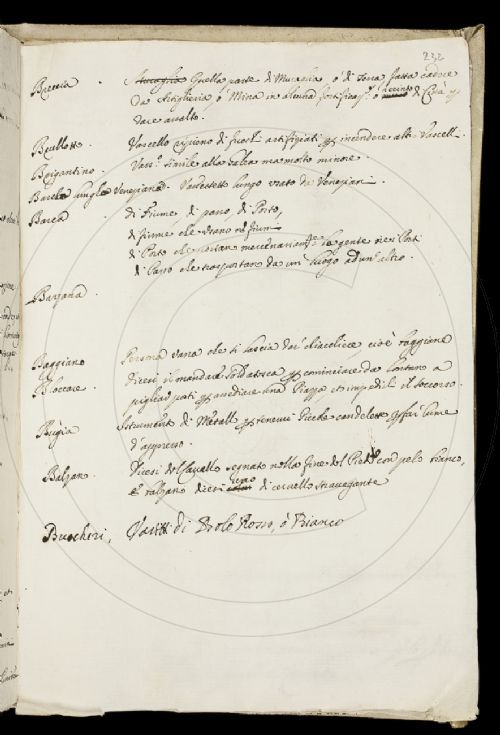 232
Breccia . Muraglia Quella parte di Muraglia ò di Terra fatta cadere
da Artiglieria ò Mina in alcuna fortificaz.e ò recinto di Città p
dare assalto.
Brullotto . Vascello ripieno di fuochi artifiziati p incendere altri Vascelli
Brigantino . Vasc.o simile alla Galea ma molto minore .
Barca lunga Veneziana . Vascelletto lungo usato da Veneziani .
Barca . di Fiume di passo, di Porto,
di fiume che usano nel fium
di Porto che portan la gente nei Porti
di Passo che trasportan da un luogo ad un altro .
Barzana .
Baggiano Persona vana che si lascia dar cioè
Bloccare . Diresi il mandare Soldatesca p cominciare da lontano a
pigliar posti p assediare una Piazza et impedirli il soccorso .
Bugia Istrumento di Metallo p tenervi Piccole candelette p far lume
d'appresso .
Balzano . Diresi del Cavallo segnato nella fine del Piede con pelo bianco,
E balzano diresi uno di cervello stravagante
Buccheri , Vasetti di Bolo Rosso, ò Bianco